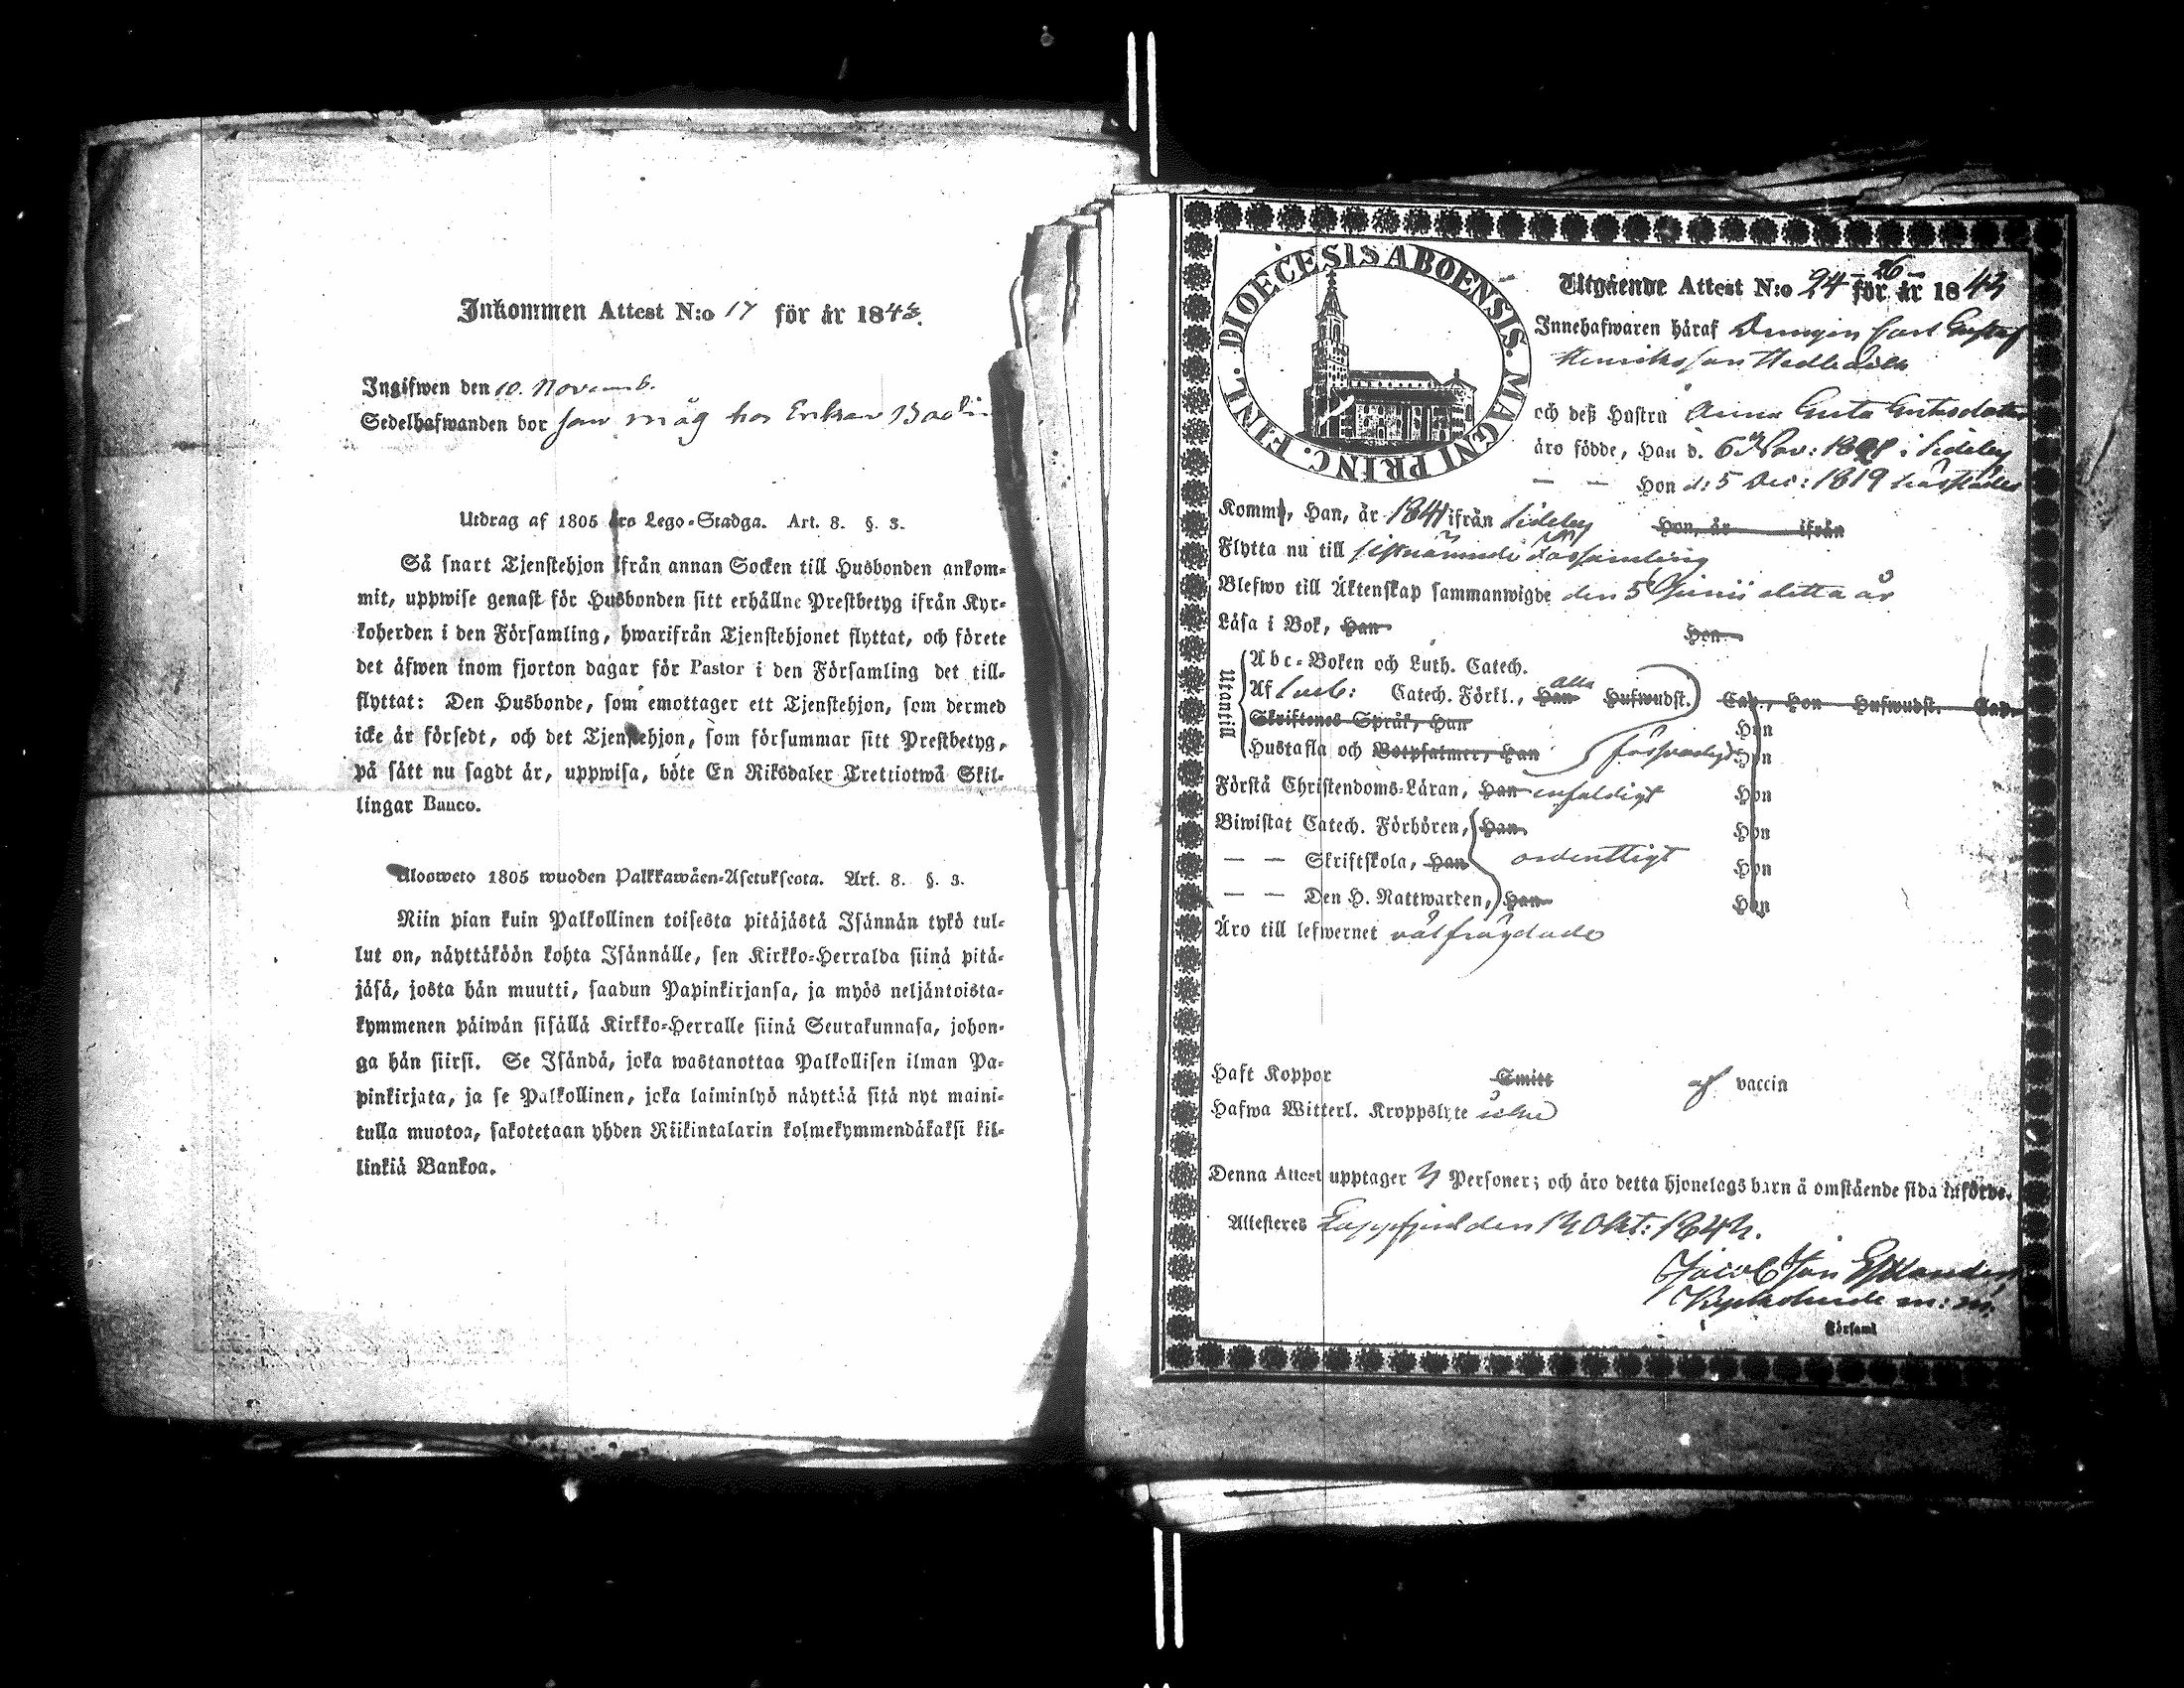 Inkommen Attest N:o 17 för år 1843.
Ingifwen den 10. Novemb.
Sedelhafwanden bor som måg hos Erikson
Utdrag af 1805 års Lego-Stadga. Art. 8. §. 3.
Så snart Tjenstehjon ifrån annan Socken till Husbonden ankom-
mit, uppwise genast för Husbonden sitt erhållne Prestbetyg ifrån Kyr-
koherden i den Församling, hwarifrån Tjenstehjonet flyttat, och förete
det äfwen inom fjorton dagar för Pastor i den Församling det till-
flyttat: Den Husbonde, som emottager ett Tjenstehjon, som dermed
icke är försedt, och det Tjenstehjon, som försummar sitt Prestbetyg,
på sätt nu sagdt är, uppwisa, böte En Riksdaler Trettiotwå Skil-
lingar Banco.
Ulosweto 1805 wuoden Palkkawäen-Asetuksesta. Art. 8. §. 3.
Niin pian kuin Palkollinen toisesta pitäjästä Isännän tykö tul-
lut on, näyttäköön kohta Isännälle, sen Kirkko-Herralda siinä pitä-
jäsä, josta hän muutti, saadun Papinkirjansa, ja myös neljäntoista-
kymmenen päiwän sisällä Kirkko-Herralle siinä Seurakunnasa, johon-
ga hän siirsi. Se Isändä, joka wastanottaa Palkollisen ilman Pa-
pinkirjata, ja se Palkollinen, joka laiminlyö näyttää sitä nyt maini-
tulla muotoa, sakotetaan yhden Riikintalarin kolmekymmendäkaksi kil-
linkiä Bankoa.
DIOECESIS ABOENSIS. MAGNI PRINC. FINL.
Utgående Attest N:o 24-26- för år 1843
Innehafwaren häraf Drengen Carl Gustaf
Henriksson
och deß Hustru Anna Greta Eriksdotter
äro födde, Han d. 6 Nov: i Sideby
— — Hon d: 5 Dec: 1819 härstädes
Komm, Han, år 1841 ifrån Sideby Hon, år ifrån
Flytta nu till sistnämnde församling
Blefwo till Äktenskap sammanwigde den 5 Junii detta år
Läsa i Bok, Han Hon
Utantill
Abc-Boken och Luth. Catech.
Af Catech. Förkl., Han alla Hufwudst. Cap., Hon Hufwudst. Cap.
Skriftenes Språk, Han Hon
Hustafla och Botpsalmer, Han försvarligt Hon
Förstå Christendoms-Läran, Han enfaldigt Hon
Biwistat Catech. Förhören, Han Hon
— — Skriftskola, Han ordentligt Hon
— — Den H. Nattwarden, Han Hon
Äro till lefwernet välfrägdade
Haft Koppor Smitt af vaccin
Hafwa Witterl. Kroppslyte
Denna Attest upptager Personer; och äro detta hjonelags barn å omstående sida införde.
Attesteres Lappfjerd den Okt: 1843.
Jacob Joh Estlander
Kyrkoherde m:m.
Församl